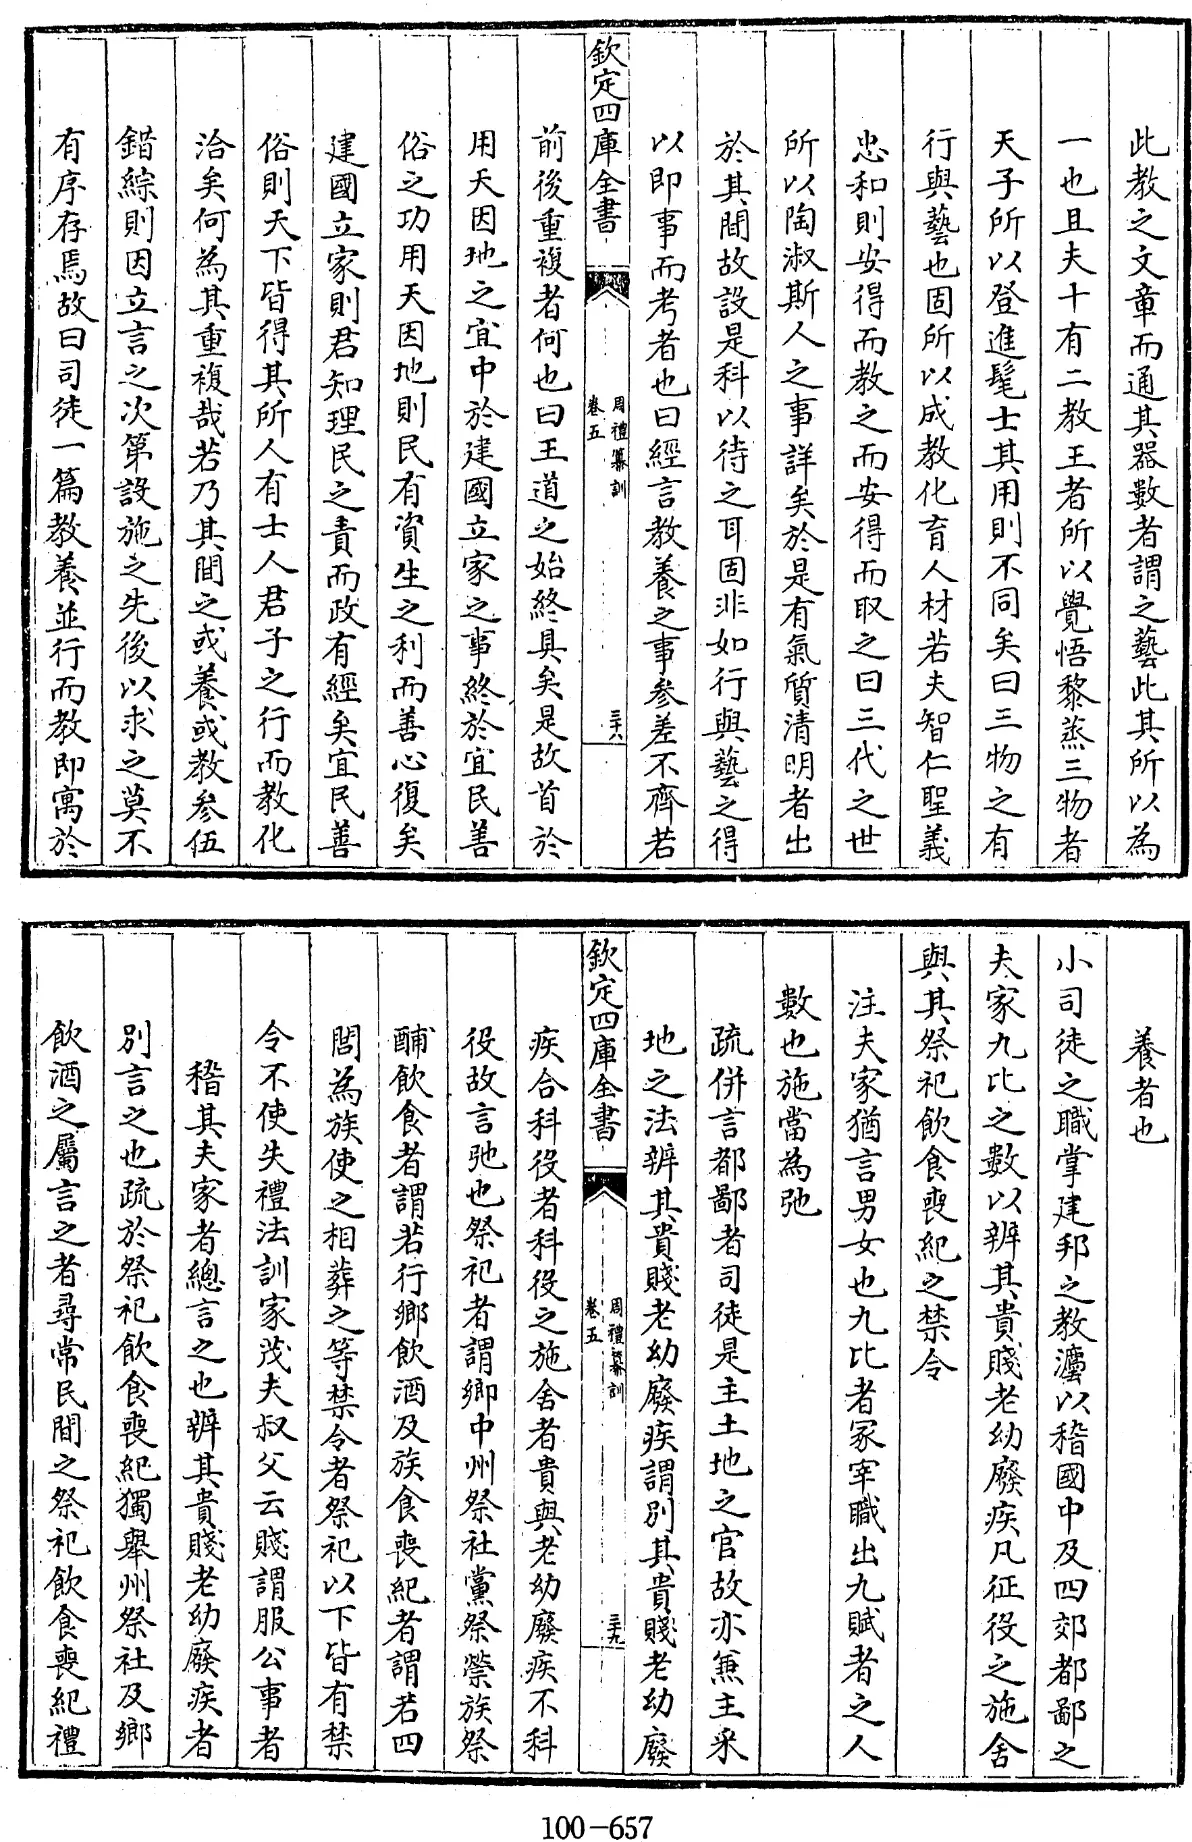 此教之文章而通其器數者謂之藝此其所以為
一也且夫十有二教王者所以覺悟黎蒸三物者
天子所以登進髦士其用則不同矣曰三物之有
行與藝也固所以成教化育人材若夫智仁聖義
忠和則安得而教之而安得而取之曰三代之世
所以陶淑斯人之事詳矣於是有氣質清明者出
於其間故設是科以待之耳固非如行與藝之得
以即事而考者也曰經言教養之事參差不齊若
欽定四庫全書
周禮纂訓
卷五
三十八
前後重複者何也曰王道之始終具矣是故首於
用天因地之宜中於建國立家之事終於宜民善
俗之功用天因地則民有資生之利而善心復矣
建國立家則君知理民之責而政有經矣宜民善
俗則天下皆得其所人有士人君子之行而教化
洽矣何為其重複哉若乃其間之或養或教參伍
錯綜則因立言之次第設施之先後以求之莫不
有序存焉故曰司徒一篇教養並行而教即寓於
養者也
小司徒之職掌建邦之教灋以稽國中及四郊都鄙之
夫家九比之數以辨其貴賤老幼廢疾凡征役之施舍
與其祭祀飲食喪紀之禁令
注夫家猶言男女也九比者冢宰職出九賦者之人
數也施當為弛
疏併言都鄙者司徒是主土地之官故亦兼主采
地之法辨其貴賤老幼廢疾謂別其貴賤老幼廢
欽定四庫全書
周禮纂訓
卷五
三十九
疾合科役者科役之施舍者貴與老幼廢疾不科
役故言弛也祭祀者謂鄉中州祭社黨祭禜族祭
酺飲食者謂若行鄉飲酒及族食喪紀者謂若四
閭為族使之相葬之等禁令者祭祀以下皆有禁
令不使失禮法訓家茂夫叔父云賤謂服公事者
稽其夫家者總言之也辨其貴賤老幼廢疾者
別言之也疏於祭祀飲食喪紀獨舉州祭社及鄉
飲酒之屬言之者尋常民間之祭祀飲食喪紀禮
100-657